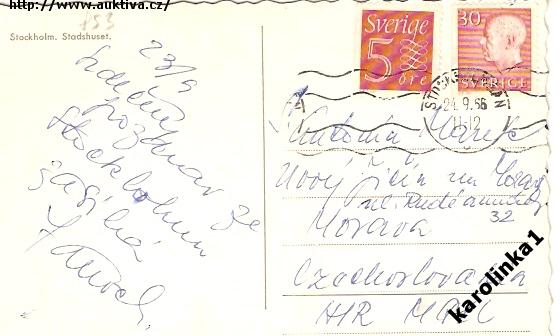 http://www.auktiva.cz/
153
Stockholm. Stadshuset.
23/9
Srdečný
pozdrav ze
Stockholmu
zasílá
Sverige
5
öre
30
SVERIGE
24.9.66
11-12
Nový Jičín na
ul. Rudé armády
32
Morava
Czechoslovakia
karolinka1